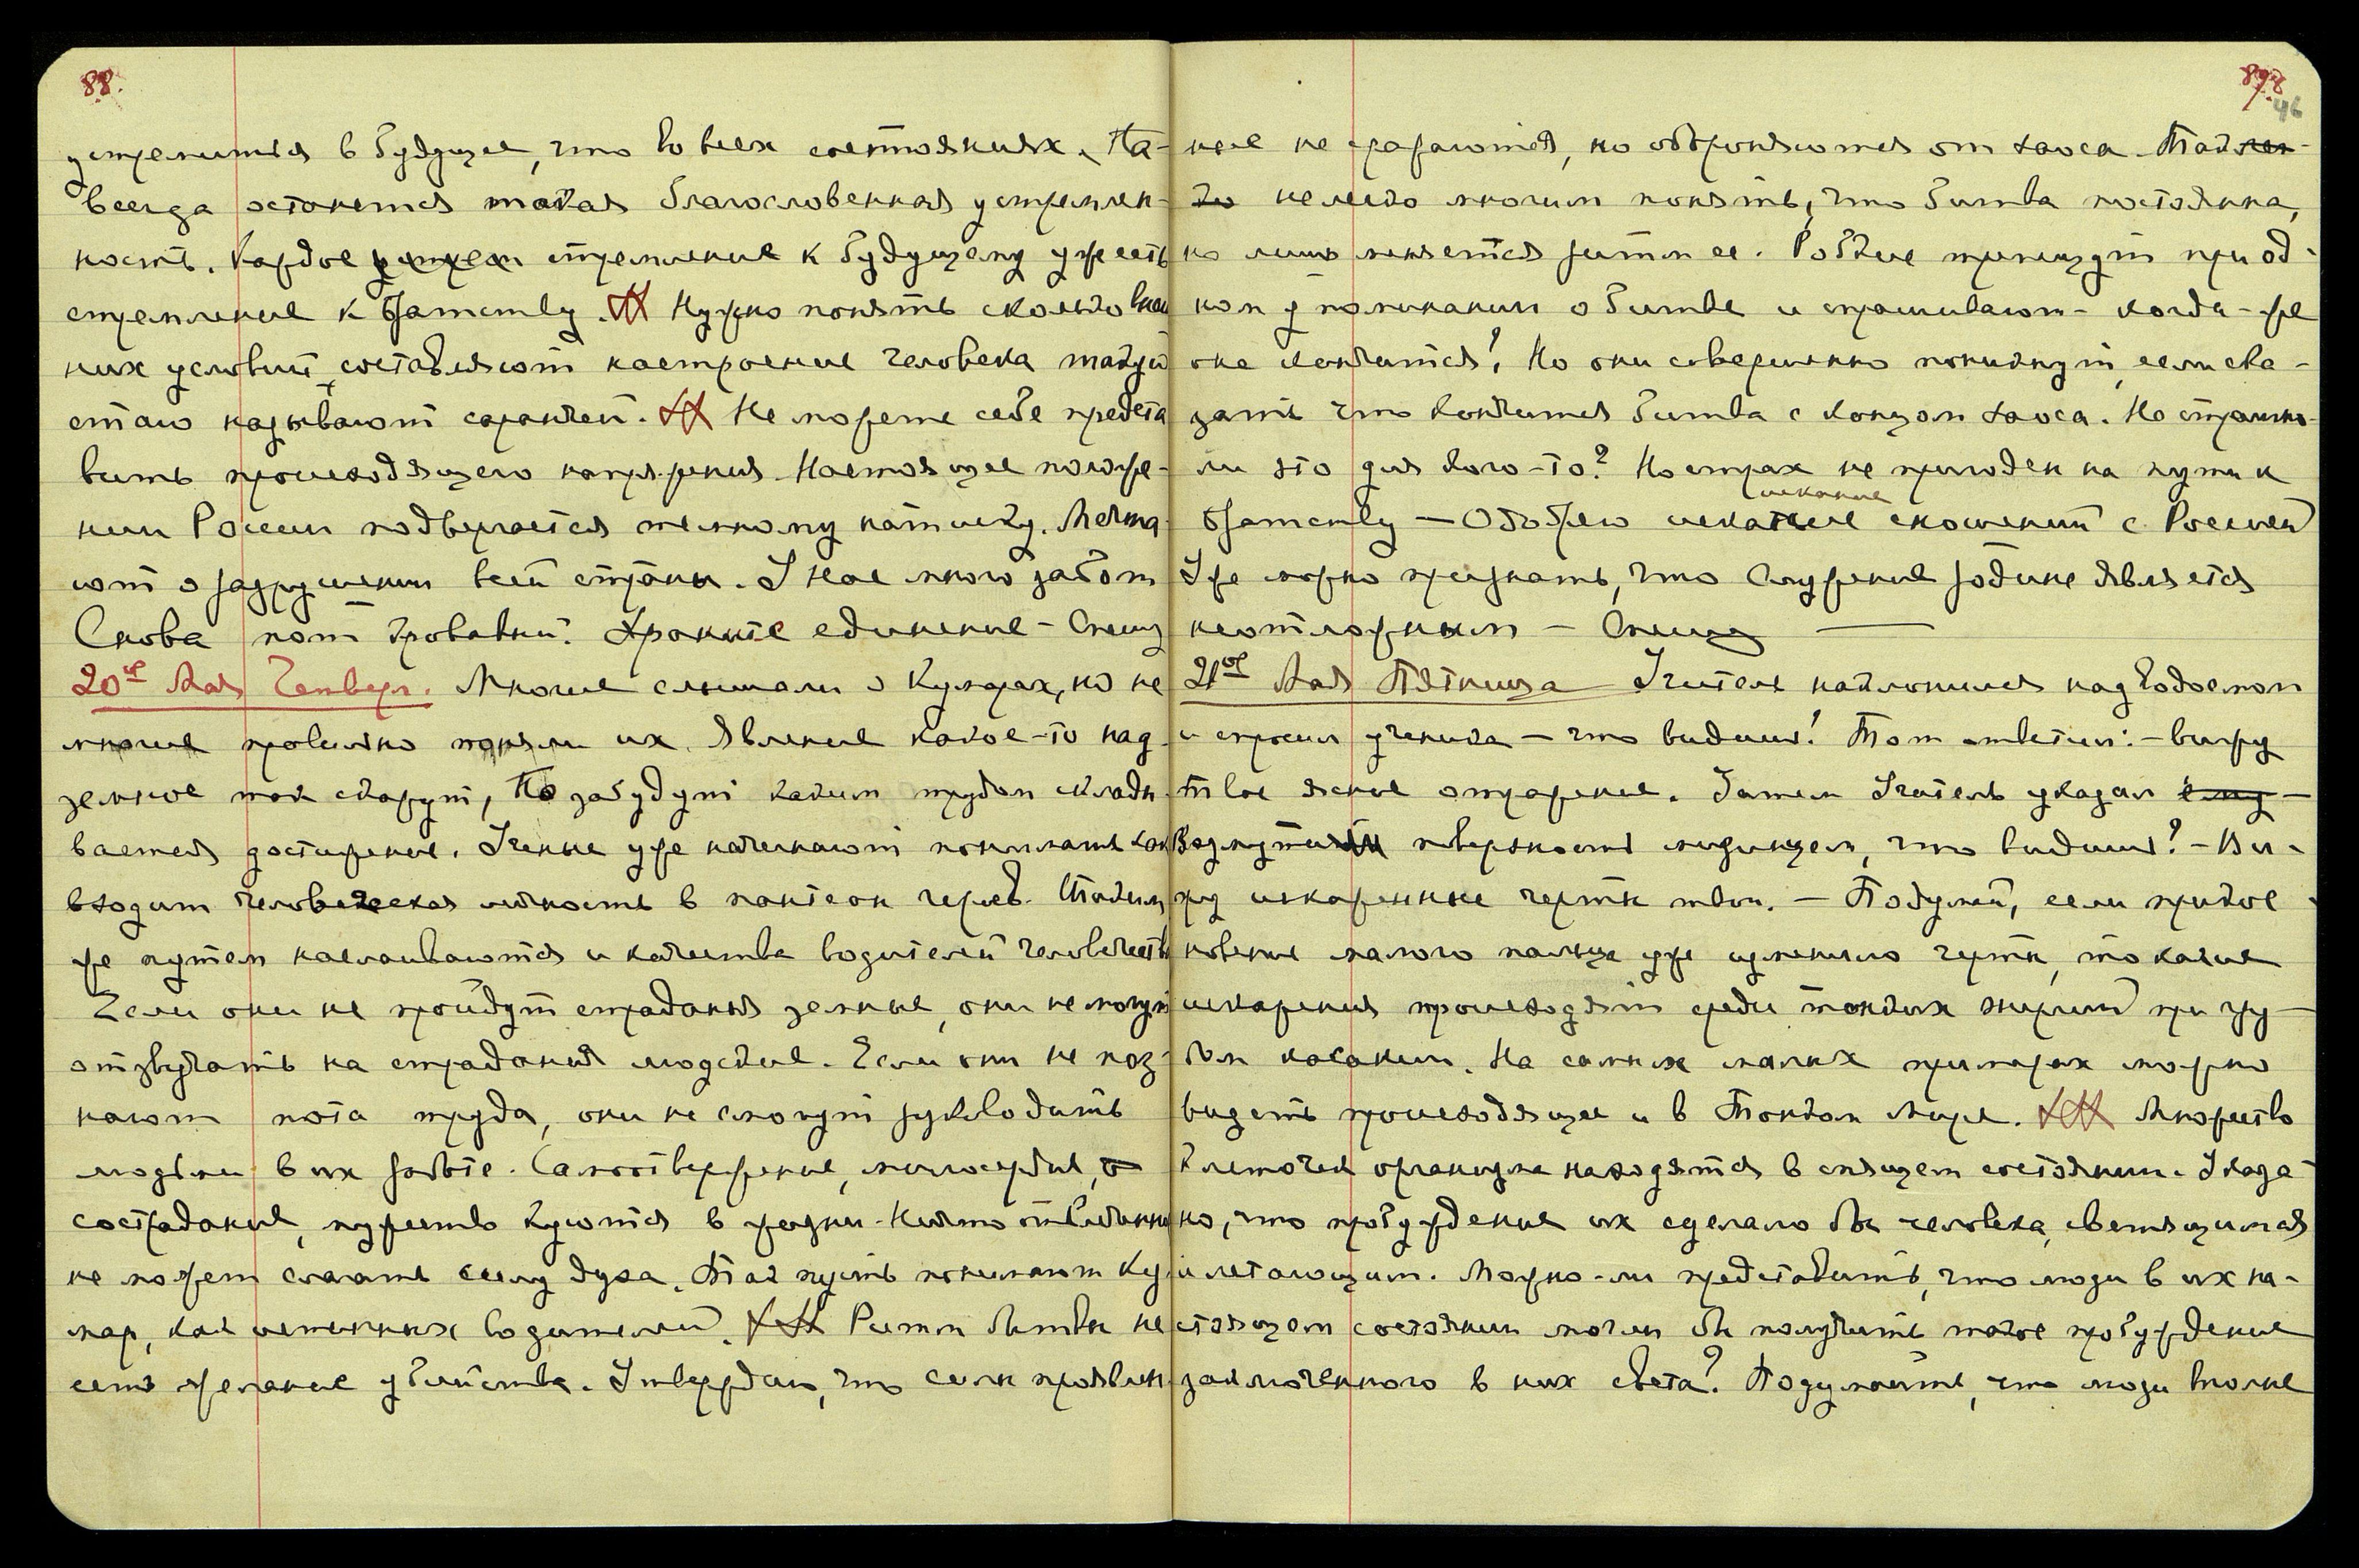 88.
устремиться в будущее, что во всех состояниях. На-
всегда останется такая благословенная устремлен-
ность. Каждое стремление к будущему уже есть
стремление к Братству. Нужно понять сколько внеш
них условий составляют настроение человека такую
стаю называют саранчей. Не можете себе предста
вить происходящего напряжения. Настоящее положе-
нии России подвергается темному натиску. Мечта-
ют о разрушении всей страны. У Нас много забот
Снова пот кровавый. Храните единение - Спешу
20ое Мая Четверг. Многие слышали о Кумарах, но не
многие правильно поняли их. Явление какое-то над-
земное так скажут, Но забудут каким трудом склады
вается достижение. Ученые уже начинают понимать как
входит человеческая личность в пантеон героев. Таким
же путем наслаиваются и качества водителей человечества
Если они не пройдут страданья земные, они не могут
отзвучать на страдания людские. Если они не поз-
нают пота труда, они не смогут руководить
людьми в их работе. Самоотвержение, милосердие,
сострадание, мужество куются в жизни. Ничто отвлеченное
не может слагать силу духа. Так пусть понимают Ку
мар, как истинных водителей. Ритм Битвы не
есть желание убийства. Утверждаю, что силы проявлен
89.
46
ные не сражаются, но обороняются от хаоса. Так
нелегко многим понять, что битва постоянна,
но лишь меняется ритм ее. Робкие трепещут при од-
ном упоминании о битве и спрашивают - когда-же
она кончится? Но они совершенно поникнут, если ска-
зать что кончится битва с концом хаоса. Не страшно-
ли это для кого-то? Но страх не пригоден на пути к
искание
Братству — Одобряю искание сношений с Россией
Уже можно признать, что Служение родине является
неотложным — Спешу
21ое Мая Пятница Учитель наклонился над водоемом
и спросил ученика — что видишь? Тот ответил: - вижу
твое ясное отражение. Затем Учитель указал ему
Возмути поверхность мизинцем, что видишь? - Ви-
жу искаженные черты твои. — Подумай, если прикос-
новение малого пальца уже изменило черты, то какие
искажения происходят среди тонких энергий при гру-
бом касании. На самых малых примерах можно
видеть происходящее и в Тонком Мире. Множество
клеточек организма находятся в спящем состоянии. Указа-
но, что пробуждение их сделало бы человека светящимся
и летающим. Можно-ли представить, что люди в их на-
стоящем состоянии могли бы получить такое пробуждение
заключенного в них света? Подумайте, что люди вполне